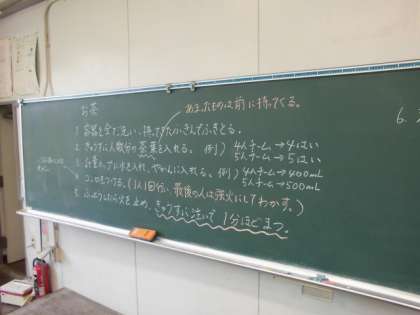 お茶
あまったものは前に持ってくる。
1. 容器を全て洗い、持ってきたふきんでふきとる。
2. きゅうすに人数分の茶葉を入れる。例)4人チーム→4はい
5人チーム→5はい
3. 計量カップに水を入れ、やかんに入れる。例)4人チーム→400mL
5人チーム→500mL
4. コンロをつける。(1人1回行い、最後の人は強火にしてわかす。)
5. ふっとうしたら火を止め、きゅうすに注いで1分ほどまつ。
6.